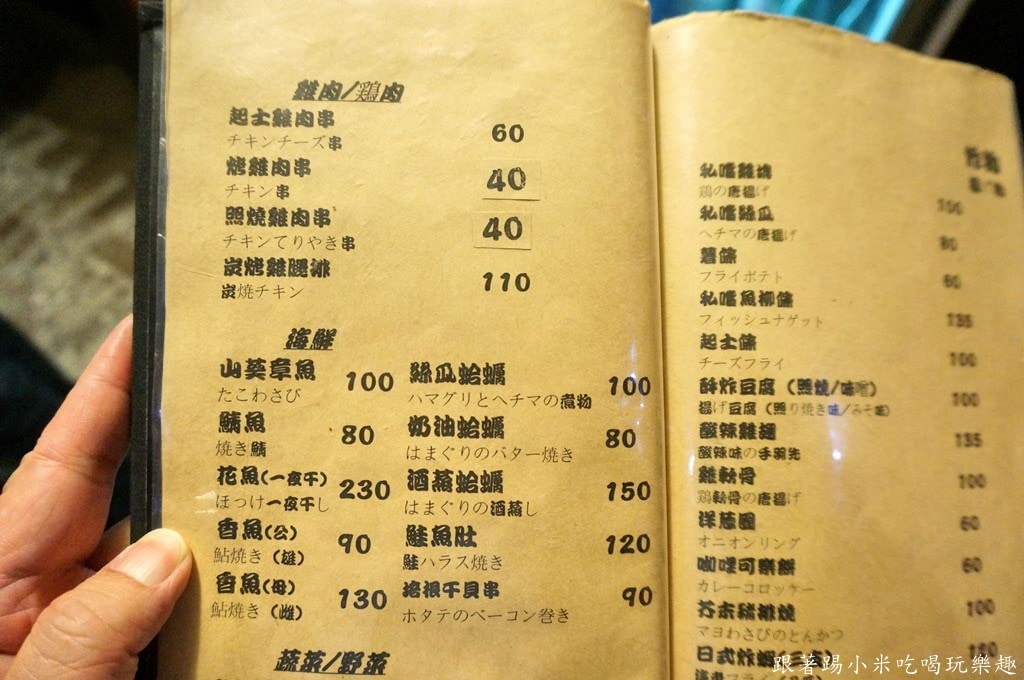 雞肉/鶏肉
起士雞肉串 60
チキンチーズ串
烤雞肉串 40
チキン串
照燒雞肉串 40
チキンてりやき串
炭烤雞腿排 110
炭焼チキン
海鮮
山葵章魚 100
たこわさび
鯖魚 80
焼き鯖
花魚(一夜干) 230
ほっけ一夜干し
香魚(公) 90
鮎焼き (雄)
香魚(母) 130
鮎焼き (雌)
絲瓜蛤蠣 100
ハマグリとヘチマの煮物
奶油蛤蠣 80
はまぐりのバター焼き
酒蒸蛤蠣 150
はまぐりの酒蒸し
鮭魚肚 120
鮭ハラス焼き
培根干貝串 90
ホタテのベーコン巻き
蔬菜/野菜
私嚐雞塊 100
鶏の唐揚げ
私嚐絲瓜 80
ヘチマの唐揚げ
薯條 60
フライポテト
私嚐魚柳條 135
フィッシュナゲット
起士條 100
チーズフライ
酥炸豆腐 (照燒/味噌) 100
揚げ豆腐 (照り焼き味/みそ味)
酸辣雞翅 135
酸辣味の手羽先
雞軟骨 100
鶏軟骨の唐揚げ
洋蔥圈 60
オニオンリング
咖哩可樂餅 60
カレーコロッケー
芥末豬排燒 100
マヨわさびのとんかつ
日式炸蝦 180
跟著踢小米吃喝玩樂趣